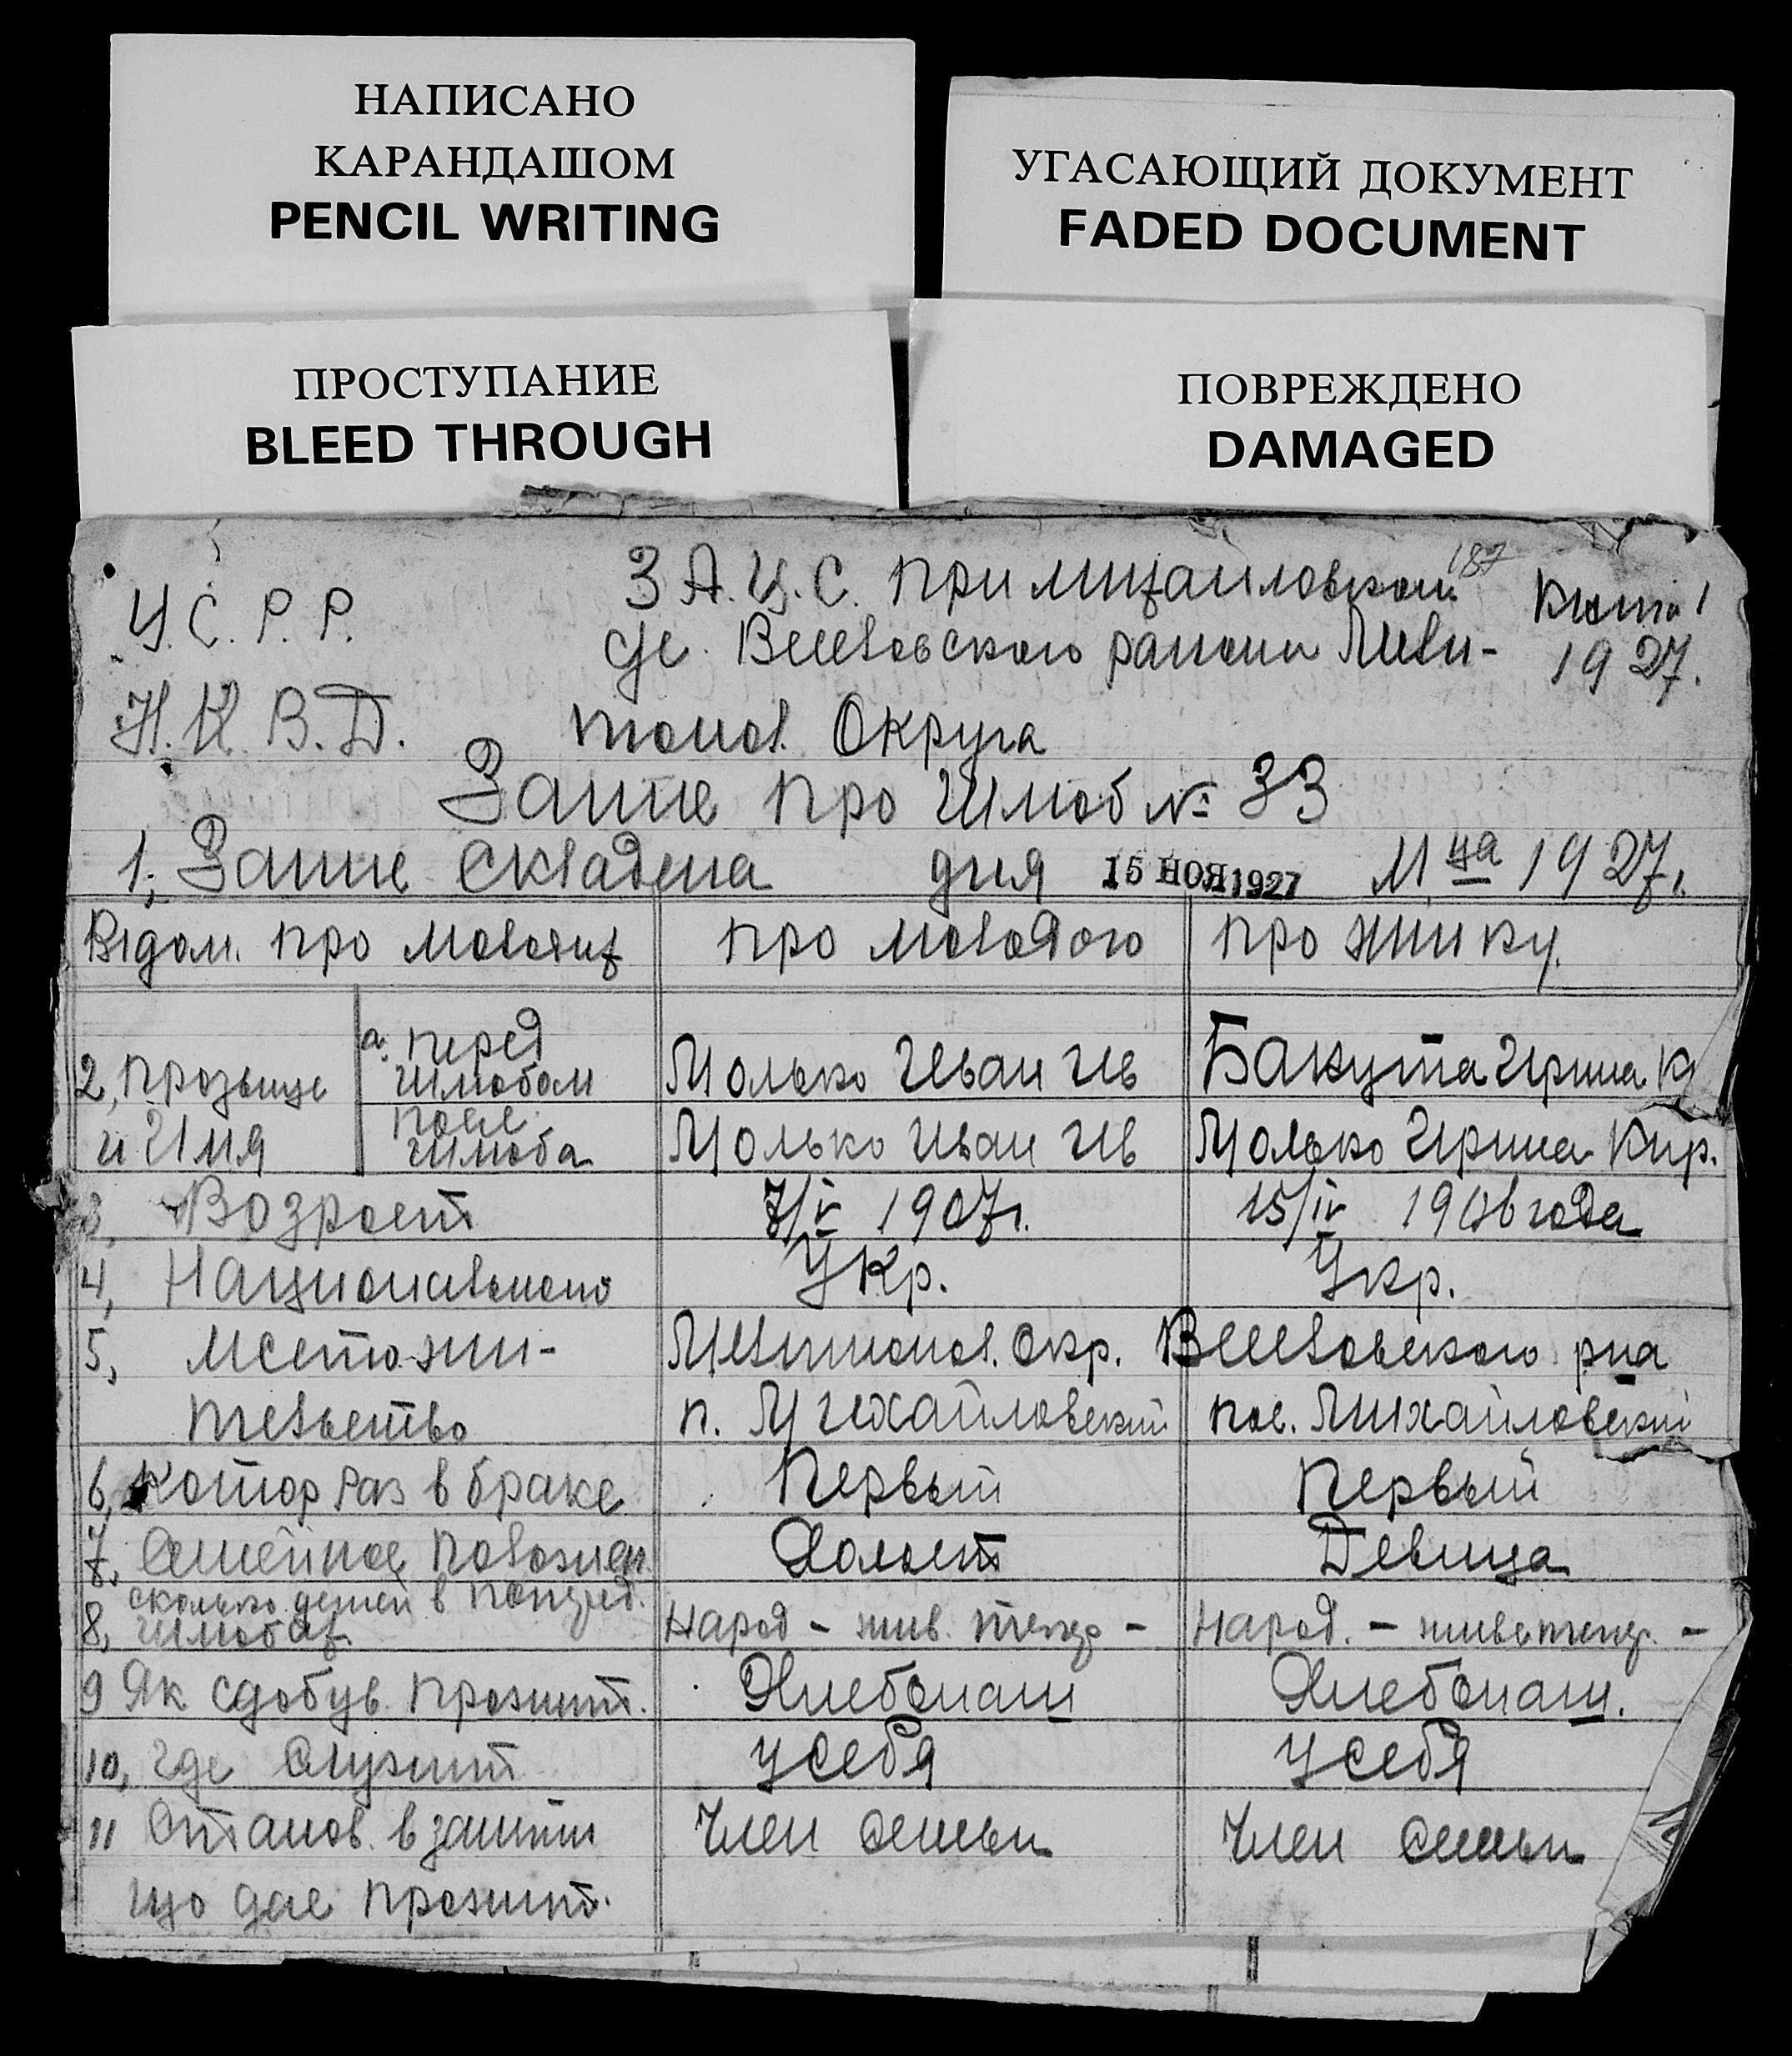 НАПИСАНО
КАРАНДАШОМ
PENCIL WRITING
УГАСАЮЩИЙ ДОКУМЕНТ
FADED DOCUMENT
ПРОСТУПАНИЕ
BLEED THROUGH
ПОВРЕЖДЕНО
DAMAGED
187
У.С.Р.Р. З А.Ц.С. при михаиловском Книга 1
с/с. Веселовского района Мели- 1927.
Н.К.В.Д. топол. Округа
Запис про Шлюб № 33
1, Запис Складена дня 15 НОЯ 1927 М ця 1927г.
Відом. про молодих про молодого про жинку.
2, прозвище и Имя
а. перед шлюбом Молько Иван Ив Бакута Ирина К
посл. шлюба Молько Иван Ив Молько Ирина Кир.
3, Возраст 7/IV 1907г. 15/IV 1906 года
4, Национально Укр. Укр.
5, Местожи- Мелитопол. Окр. Веселовского рна
тельство п. Михайловский пос. Михайловский
6, Котор раз в браке Первый Первый
7, Семейное положен. Холост Девица
8, сколько детей в попред. шлюбах Народ - жив. тепер - Народ. - живе тепер. -
9 Як сдобув. прожит. Хлебопаш Хлебопаш.
10, где служит у себя у себя
11 Станов. в занятии Член семьи Член семьи
що дае прожит.